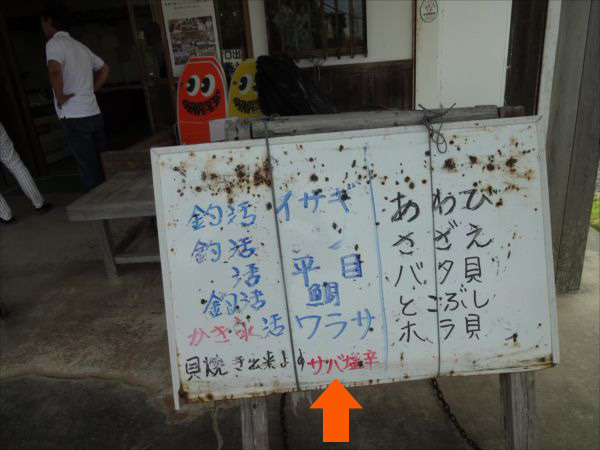 釣活 イサギ
釣活
活 平目
釣活 鯛
かき氷 活ワラサ
貝焼き出来ます サバ塩辛
あわび
さざえ
バタ貝
とこぶし
ホラ貝
出口